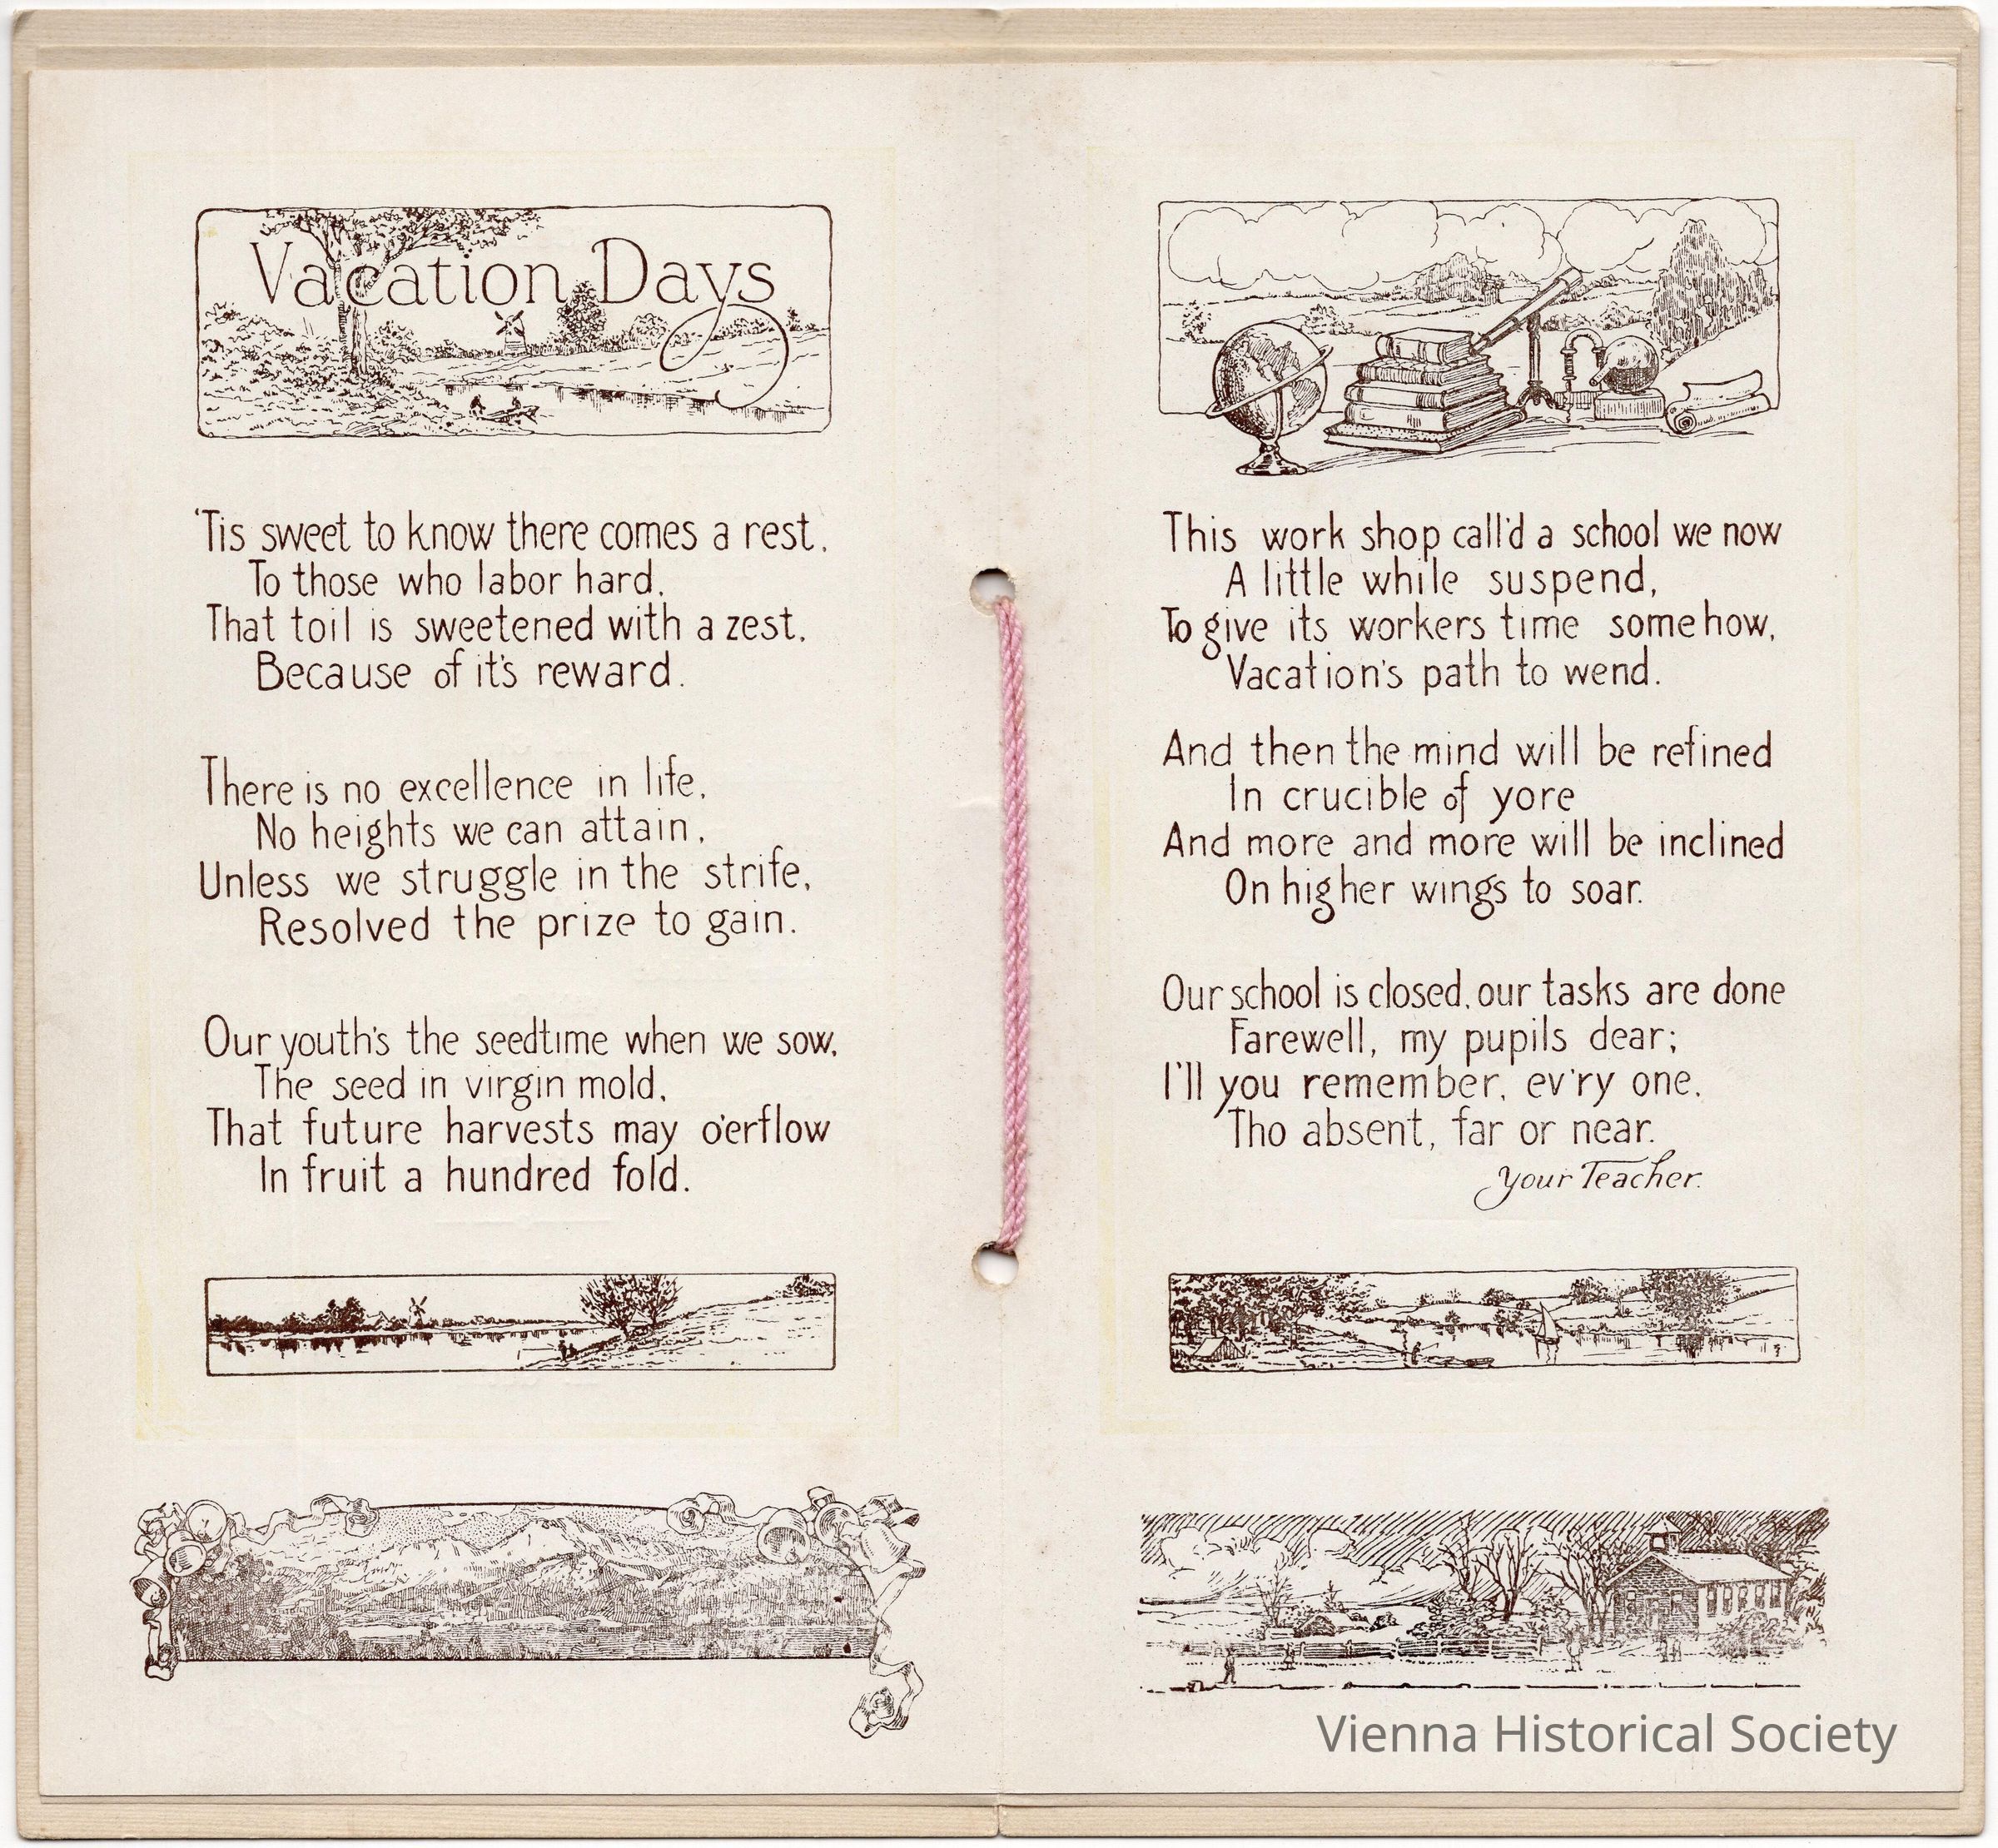 Vacation Days
'Tis sweet to know there comes a rest,
To those who labor hard,
That toil is sweetened with a zest,
Because of it's reward.
There is no excellence in life,
No heights we can attain,
Unless we struggle in the strife,
Resolved the prize to gain.
Our youth's the seedtime when we sow,
The seed in virgin mold,
That future harvests may o'erflow
In fruit a hundred fold.
This work shop call'd a school we now
A little while suspend,
To give its workers time somehow,
Vacation's path to wend.
And then the mind will be refined
In crucible of yore
And more and more will be inclined
On higher wings to soar.
Our school is closed, our tasks are done
Farewell, my pupils dear;
I'll you remember, ev'ry one,
Tho absent, far or near.
Your Teacher.
Vienna Historical Society